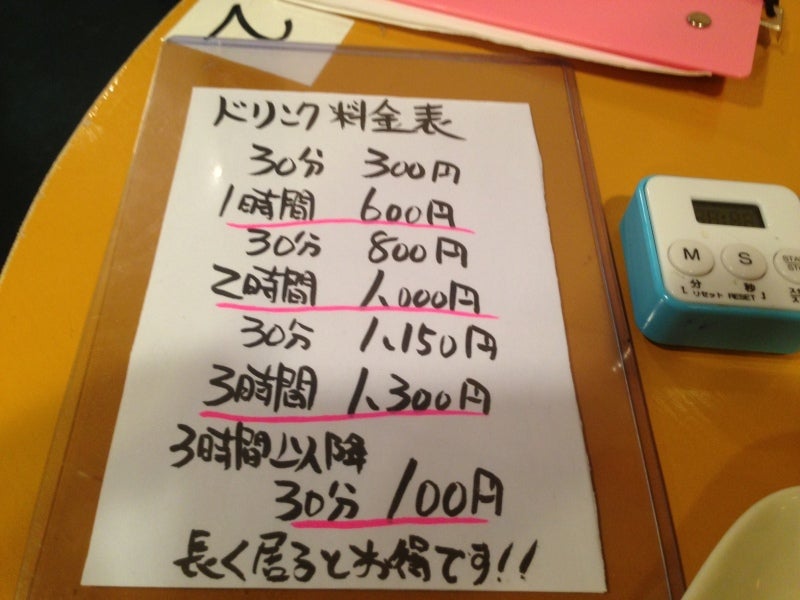 ドリンク料金表
30分 300円
1時間 600円
30分 800円
2時間 1,000円
30分 1,150円
3時間 1,300円
3時間以降
30分 100円
長く居るとお得です!!
M S
分 秒
リセット RESET